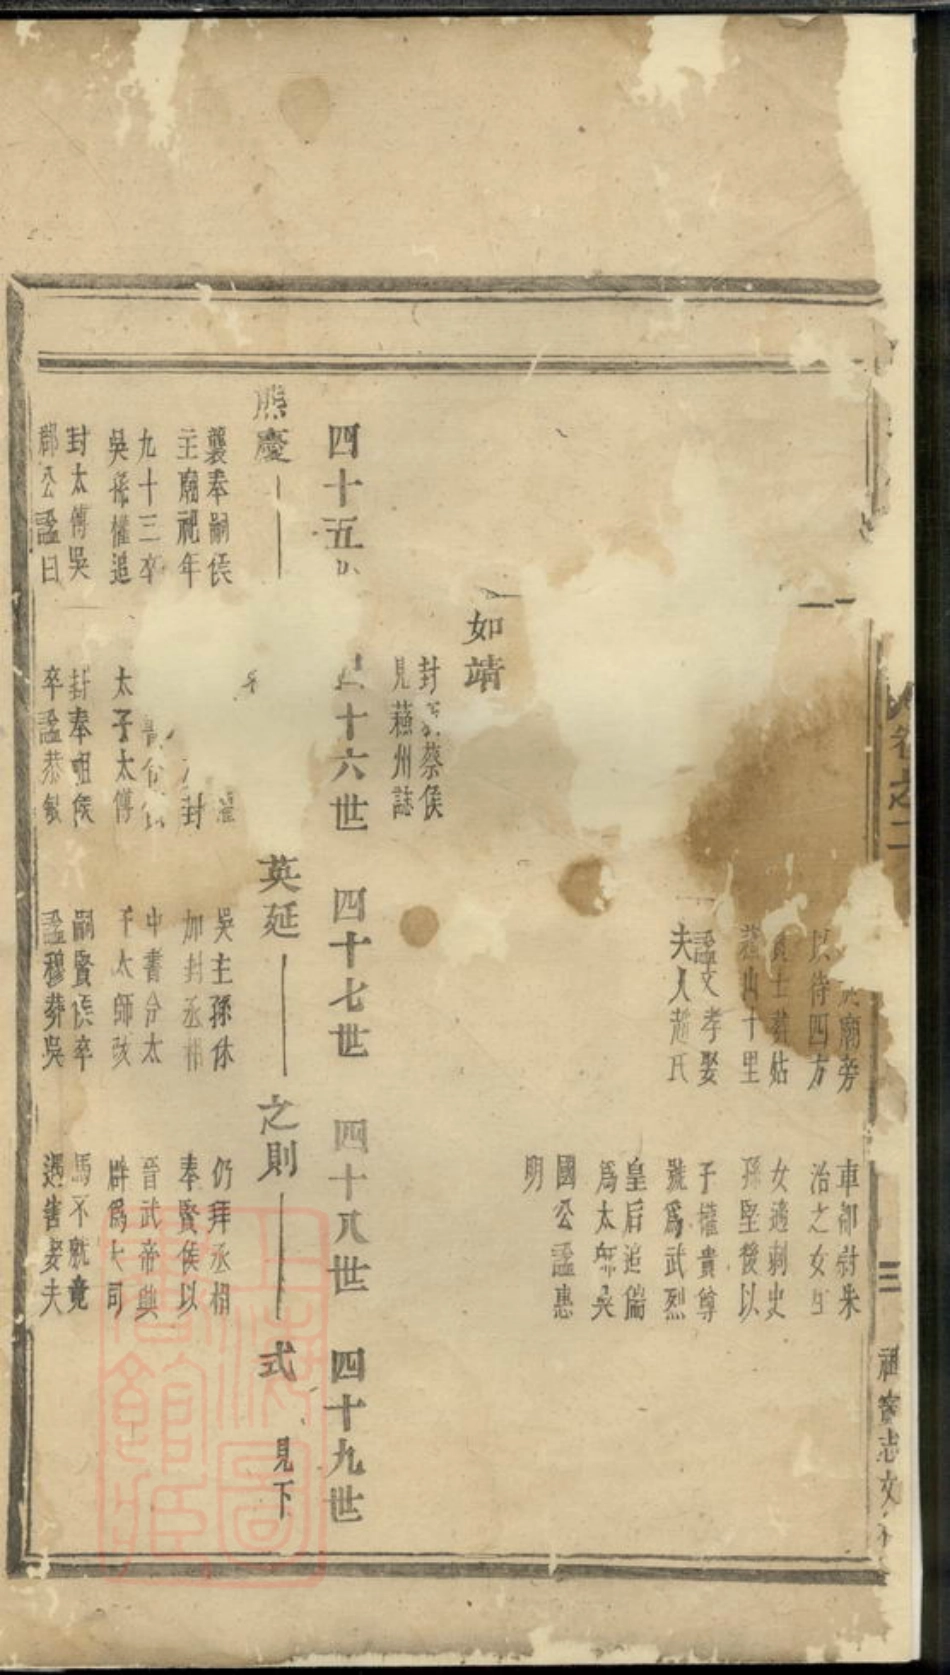 卷之二
三
廟旁
以待四方
士葬姑
山十里
諡文孝娶
夫人趙氏
車都尉朱
治之女生
女適刺史
孫堅後以
子權貴尊
號為武烈
皇后追備
為太師吳
國公諡惠
明
如靖
封蔡侯
見蘇州誌
四十五
十六世
四十七世
四十八世
四十九世
熊慶
英延
之則
式
見下
襲奉嗣侯
主廟祀年
九十三卒
吳孫權追
封太傅吳
郡公諡曰
封
太子太傅
封奉祖侯
卒諡恭敏
吳主孫休
加封丞相
中書令太
子太師致
嗣賢侯卒
諡穆葬吳
仍拜丞相
奉賢侯以
晉武帝與
辟為大司
馬不就竟
遇害妻夫